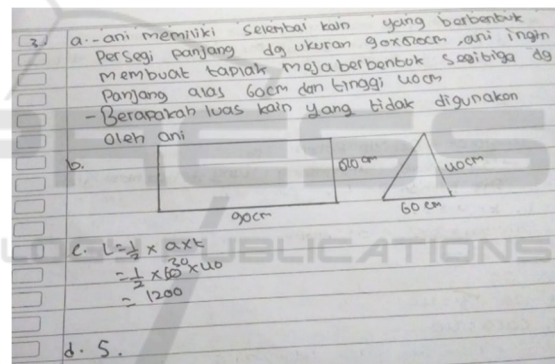 3. a. - ani memiliki selembai kain yang berbentuk
Persegi panjang dg ukuran 90x60cm, ani ingin
membuat taplak meja berbentuk segitiga dg
Panjang alas 60cm dan tinggi 40cm
- Berapakah luas kain yang tidak digunakan
oleh ani
b.
60 cm
40cm
90cm
60 cm
c. L = 1/2 x a x t
= 1/2 x 60 30 x 40
= 1200
d. 5.
PUBLICATIONS